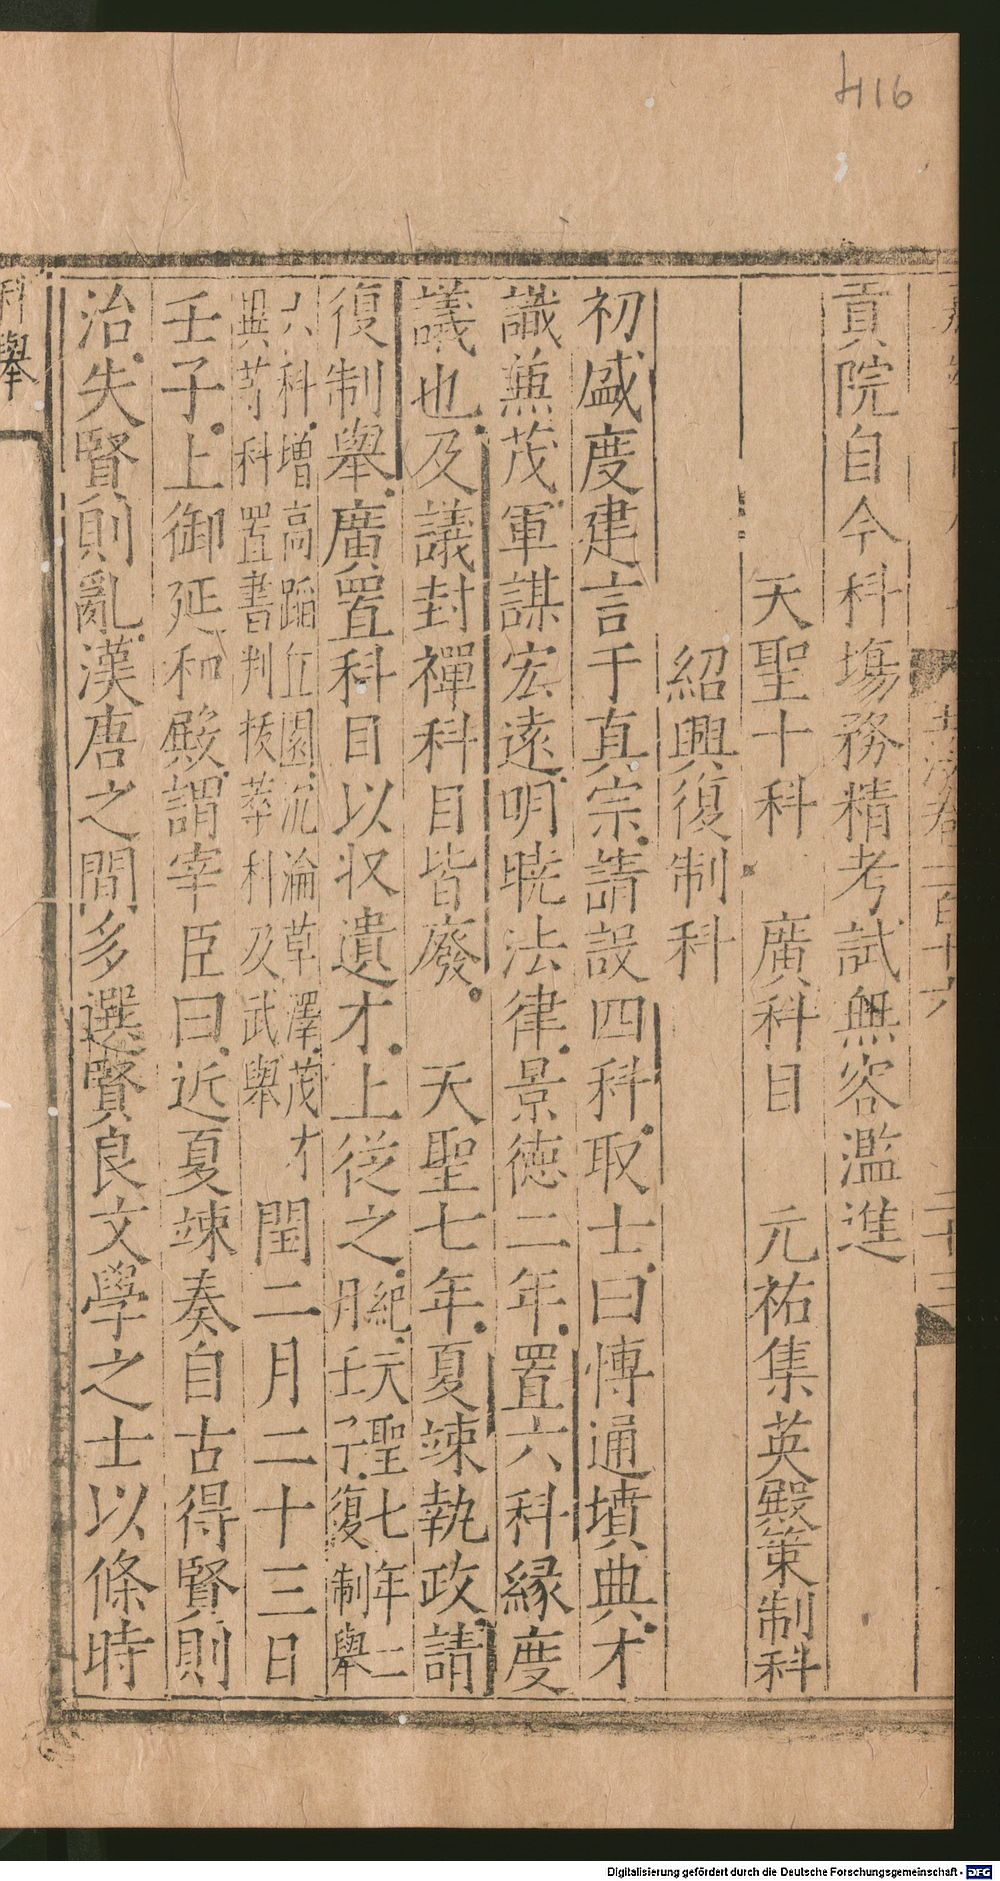 416
貢院自今科塲務精考試無容濫進
天聖十科　廣科目　元祐集英殿策制科
紹興復制科
初盛度建言于真宗請設四科取士曰愽通墳典才
識兼茂軍謀宏遠明曉法律景德二年置六科緣度
議也及議封禪科目皆廢　天聖七年夏竦執政請
復制舉廣置科目以收遺才上從之紀天聖七年二月壬子復制舉
六科增高蹈丘園沉淪草澤茂才異等科置書判拔萃科及武舉閏二月二十三日
壬子上御延和殿謂宰臣曰近夏竦奏自古得賢則
治失賢則亂漢唐之間多選賢良文學之士以條時
科舉
Digitalisierung gefördert durch die Deutsche Forschungsgemeinschaft - DFG